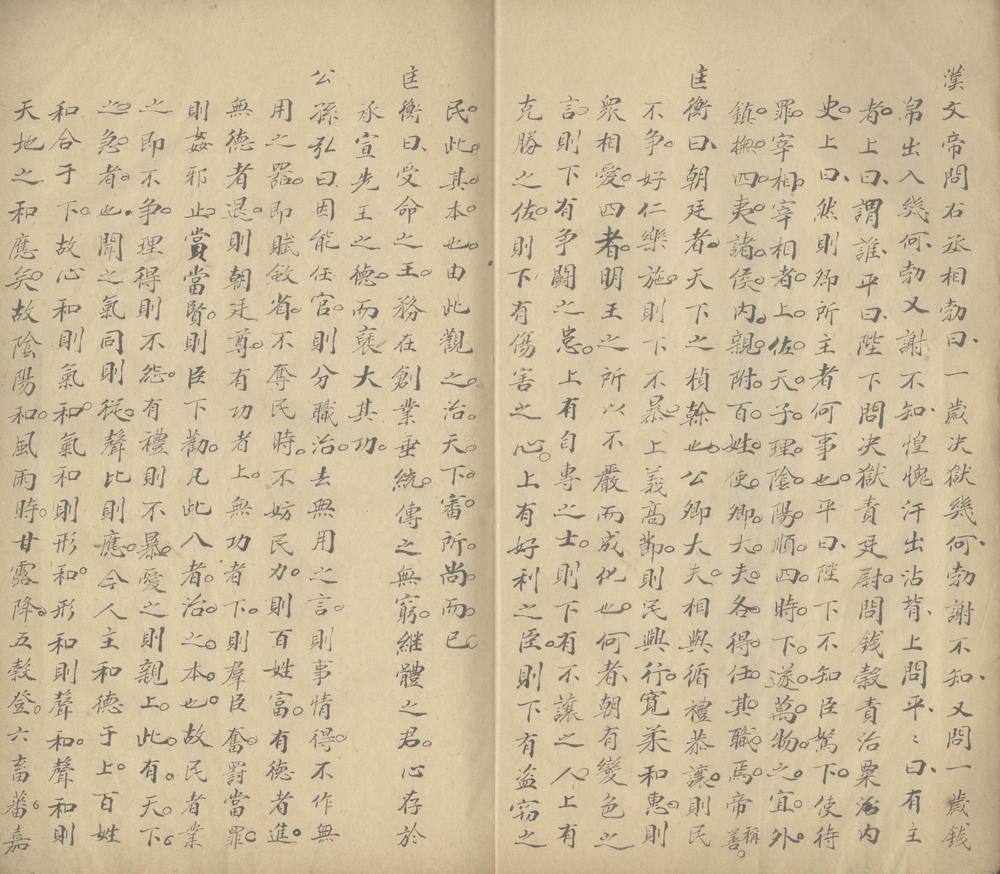 漢文帝問右丞相勃曰、一歲決獄幾何、勃謝不知、又問一歲錢
帛出入幾何、勃又謝不知、惶愧汗出沾背、上問平、〻曰、有主
者。上曰、謂誰、平曰、陛下問決獄責廷尉。問錢穀責治粟治內
史。上曰、然則卿所主者何事也。平曰、陛下不知臣駑下。使待
罪宰相。宰相者。上佐天子理陰陽。順四時。下遂萬物之宜。外
鎮撫四夷諸侯。內親附百姓。使卿大夫各得任其職焉。帝稱善。
匡衡曰、朝廷者。天下之楨幹也。公卿大夫。相與循禮恭讓。則民
不爭。好仁樂施。則下不暴。上義高節。則民興行。寬柔和惠。則
衆相愛。四者。明王之所以不嚴而成化也。何者、朝有變色之
言。則下有爭鬬之患。上有自專之士。則下有不讓之人。上有
克勝之佐。則下有傷害之心。上有好利之臣。則下有盜竊之
民。此其本也。由此觀之。治天下。審所尚而已。
匡衡曰、受命之王。務在創業垂統。傳之無窮。繼體之君。心存於
承宣先王之德。而襃大其功。
公孫弘曰、因能任官。則分職治。去無用之言。則事情得。不作無
用之器。即賦斂省。不奪民時。不妨民力。則百姓富。有德者進。
無德者退。則朝廷尊。有功者上。無功者下。則羣臣奮。罰當罪。
則姦邪止。賞當賢。則臣下勸。凡此八者。治之本也。故民者業
之即不爭。理得則不怨。有禮則不暴。愛之則親上。此有天下。
之急者也。聞之氣同則從。聲比則應。今人主和德于上。百姓
和合于下。故心和則氣和。氣和則形和。形和則聲和。聲和則
天地之和應矣。故陰陽和。風雨時。甘露降。五穀登。六畜蕃。嘉